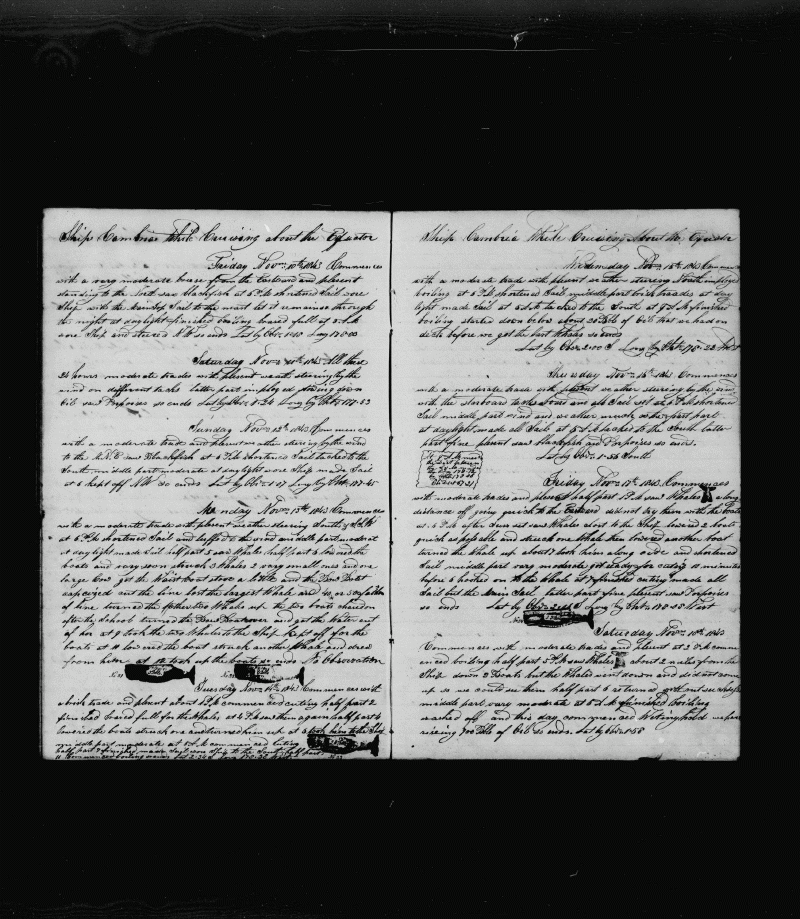 Ship Cambria While Cruising about the Equator
Friday Novm 10th 1843 Commences
with a very moderate breeze from the Eastward and plesent
standing to the South saw blackfish at 5 P.M shortened Sail wore
Ship with the Main top Sail to the mast let it remain so through
the night at daylight finished
wore Ship and steered N.W so ends Lat by Obs 1-10 Long 178-00
Saturday Novm 11th 1843 All these
24 hours moderate trades with plesent weather steering by the
wind on different tacks latter part imployed stowing down
Oil saw Porpoises so ends Lat by Obs 0-24 Long by Chr 177-53
Sunday Novm 12th 1843 Commences
with a moderate trades and plesent weather steering by the wind
to the N.N.E saw Blackfish at 6 P.M shortened Sail tacked to the
South middle part moderate at daylight wore Ship made Sail
at 6 kept off NW so ends Lat by Obs 1-17 Long by Chr 177-45
Monday Novm 13th 1843 Commences
with a moderate trade with plesent weather steering South & SSW
at 6 P.M shortened Sail and luffed to the wind middle part moderate
at daylight made Sail half past 5 saw Whales half past 6 lowered the
boats and very soon struck 3 Whales 2 very small ones and one
large Cow got the Waist boat stove a little and the Bow boat
capsized cut the line lost the largest Whale and 40 or 50 fathom
of line turned the other two Whales up the two boats chased on
after the School turned the Bow Boat over and got the Water out
of her at 9 took the two Whales to the Ship Kept off for the
boats at 11 lowered the boat struck another Whale and drew
from him at 12 took up the boats so ends No Observation
Tuesday Novm 14th 1843 Commences with
a brisk trade and plesent about 1 P.M commenced cuting half past 2
fineshed braced full for the Whales at 4 P.M saw them again half past 4
lowered the boats struck one and turned him up at 6 took him to the Ship
middle part moderate at 5 A.M commenced cuting
half past 7 finished made Sail
11 Commenced boiling so ends Lat 2-34 S Long
Ship Cambria While Cruising About the Equator
Wednesday Novm 15th 1843 Commences
with a moderate trade with plesent weather steering South imployed
boiling at 6 P.M shortened Sail middle part brisk trades at day
light made Sail at tacked to the South at 9 A.M fineshed
boiling started down below about 50 Bbls of Oil that we had on
deck before we got the last Whales so ends
Lat by Obs 2-00 S Long by Chr 178-22 West
Thursday Novm 16th 1843 Commences
with a moderate trade with plesent weather steering by the wind
with the starboard tacks aboard and all Sail set at 6 P.M shortened
Sail middle part wind and weather much as the first part
at daylight made all Sail at 5 A.M tacked to the South latter
part fine plesent saw blackfish and Porpoises so ends.
Lat by Obs 1-55 South
Friday Novm 17th 1843 Commences
with moderate trades and plesent half past 1 P.M saw Whales a long
distance off going quick to the Eastward did not try them with the boats
at 6 P.M after Sun set saw Whales close to the Ship lowered 2 boats
quick as possable and struck one Whale then lowered another boat
turned the Whale up about 7 took him along side and shortened
Sail middle part very moderate got ready for cuting 10 minutes
before 6 hooked on to the Whale at 7 finished cuting made all
Sail but the Main Sail latter part fine plesent saw Porpoises
so ends Lat by Obs S Long by Chr 178-45 West
Saturday Novm 18th 1843
Commences with moderate trades and plesent at 2 P.M comm
enced boiling half past 3 P.M saw Whales about 2 miles from the
Ship down 2 Boats but the Whales went down and did not come
up so we could see them half past 6 returned without success
middle part very moderate at 5 A.M finished boiling
washed off and this day commenced
seizing 700 Bbls of Oil so ends. Lat by Obs 1-55